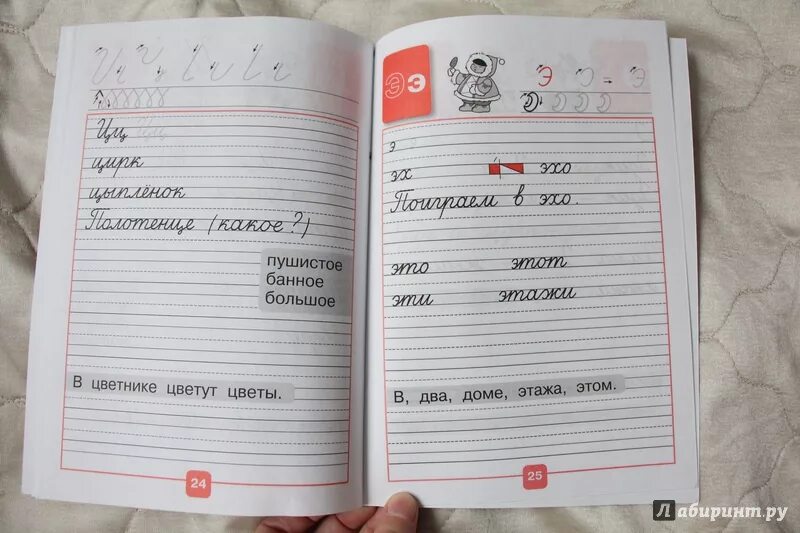 Цц Цц
цирк
цыплёнок
Полотенце (какое?)
пушистое
банное
большое
В цветнике цветут цветы.
24
Ээ
э
эх эхо
Поиграем в эхо.
это этот
эти этажи
В, два, доме, этажа, этом.
25
Лабиринт.ру